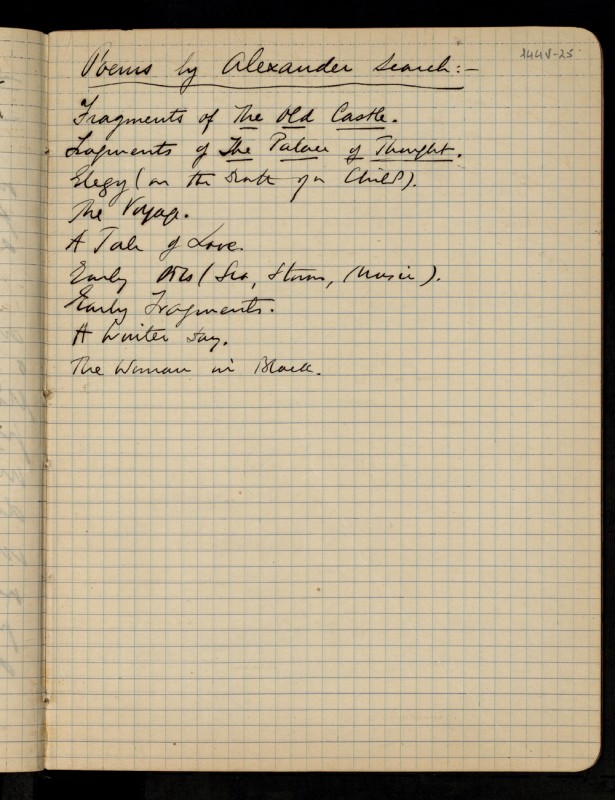 144V-25
Poems by Alexander Search:—
Fragments of The Old Castle.
Fragments of The Palace of Thought.
Elegy (on the Death of a Child).
The Voyage.
A Tale of Love.
Early (Sea, Storm, Music).
Early Fragments.
A Winter Day.
The Woman in Black.